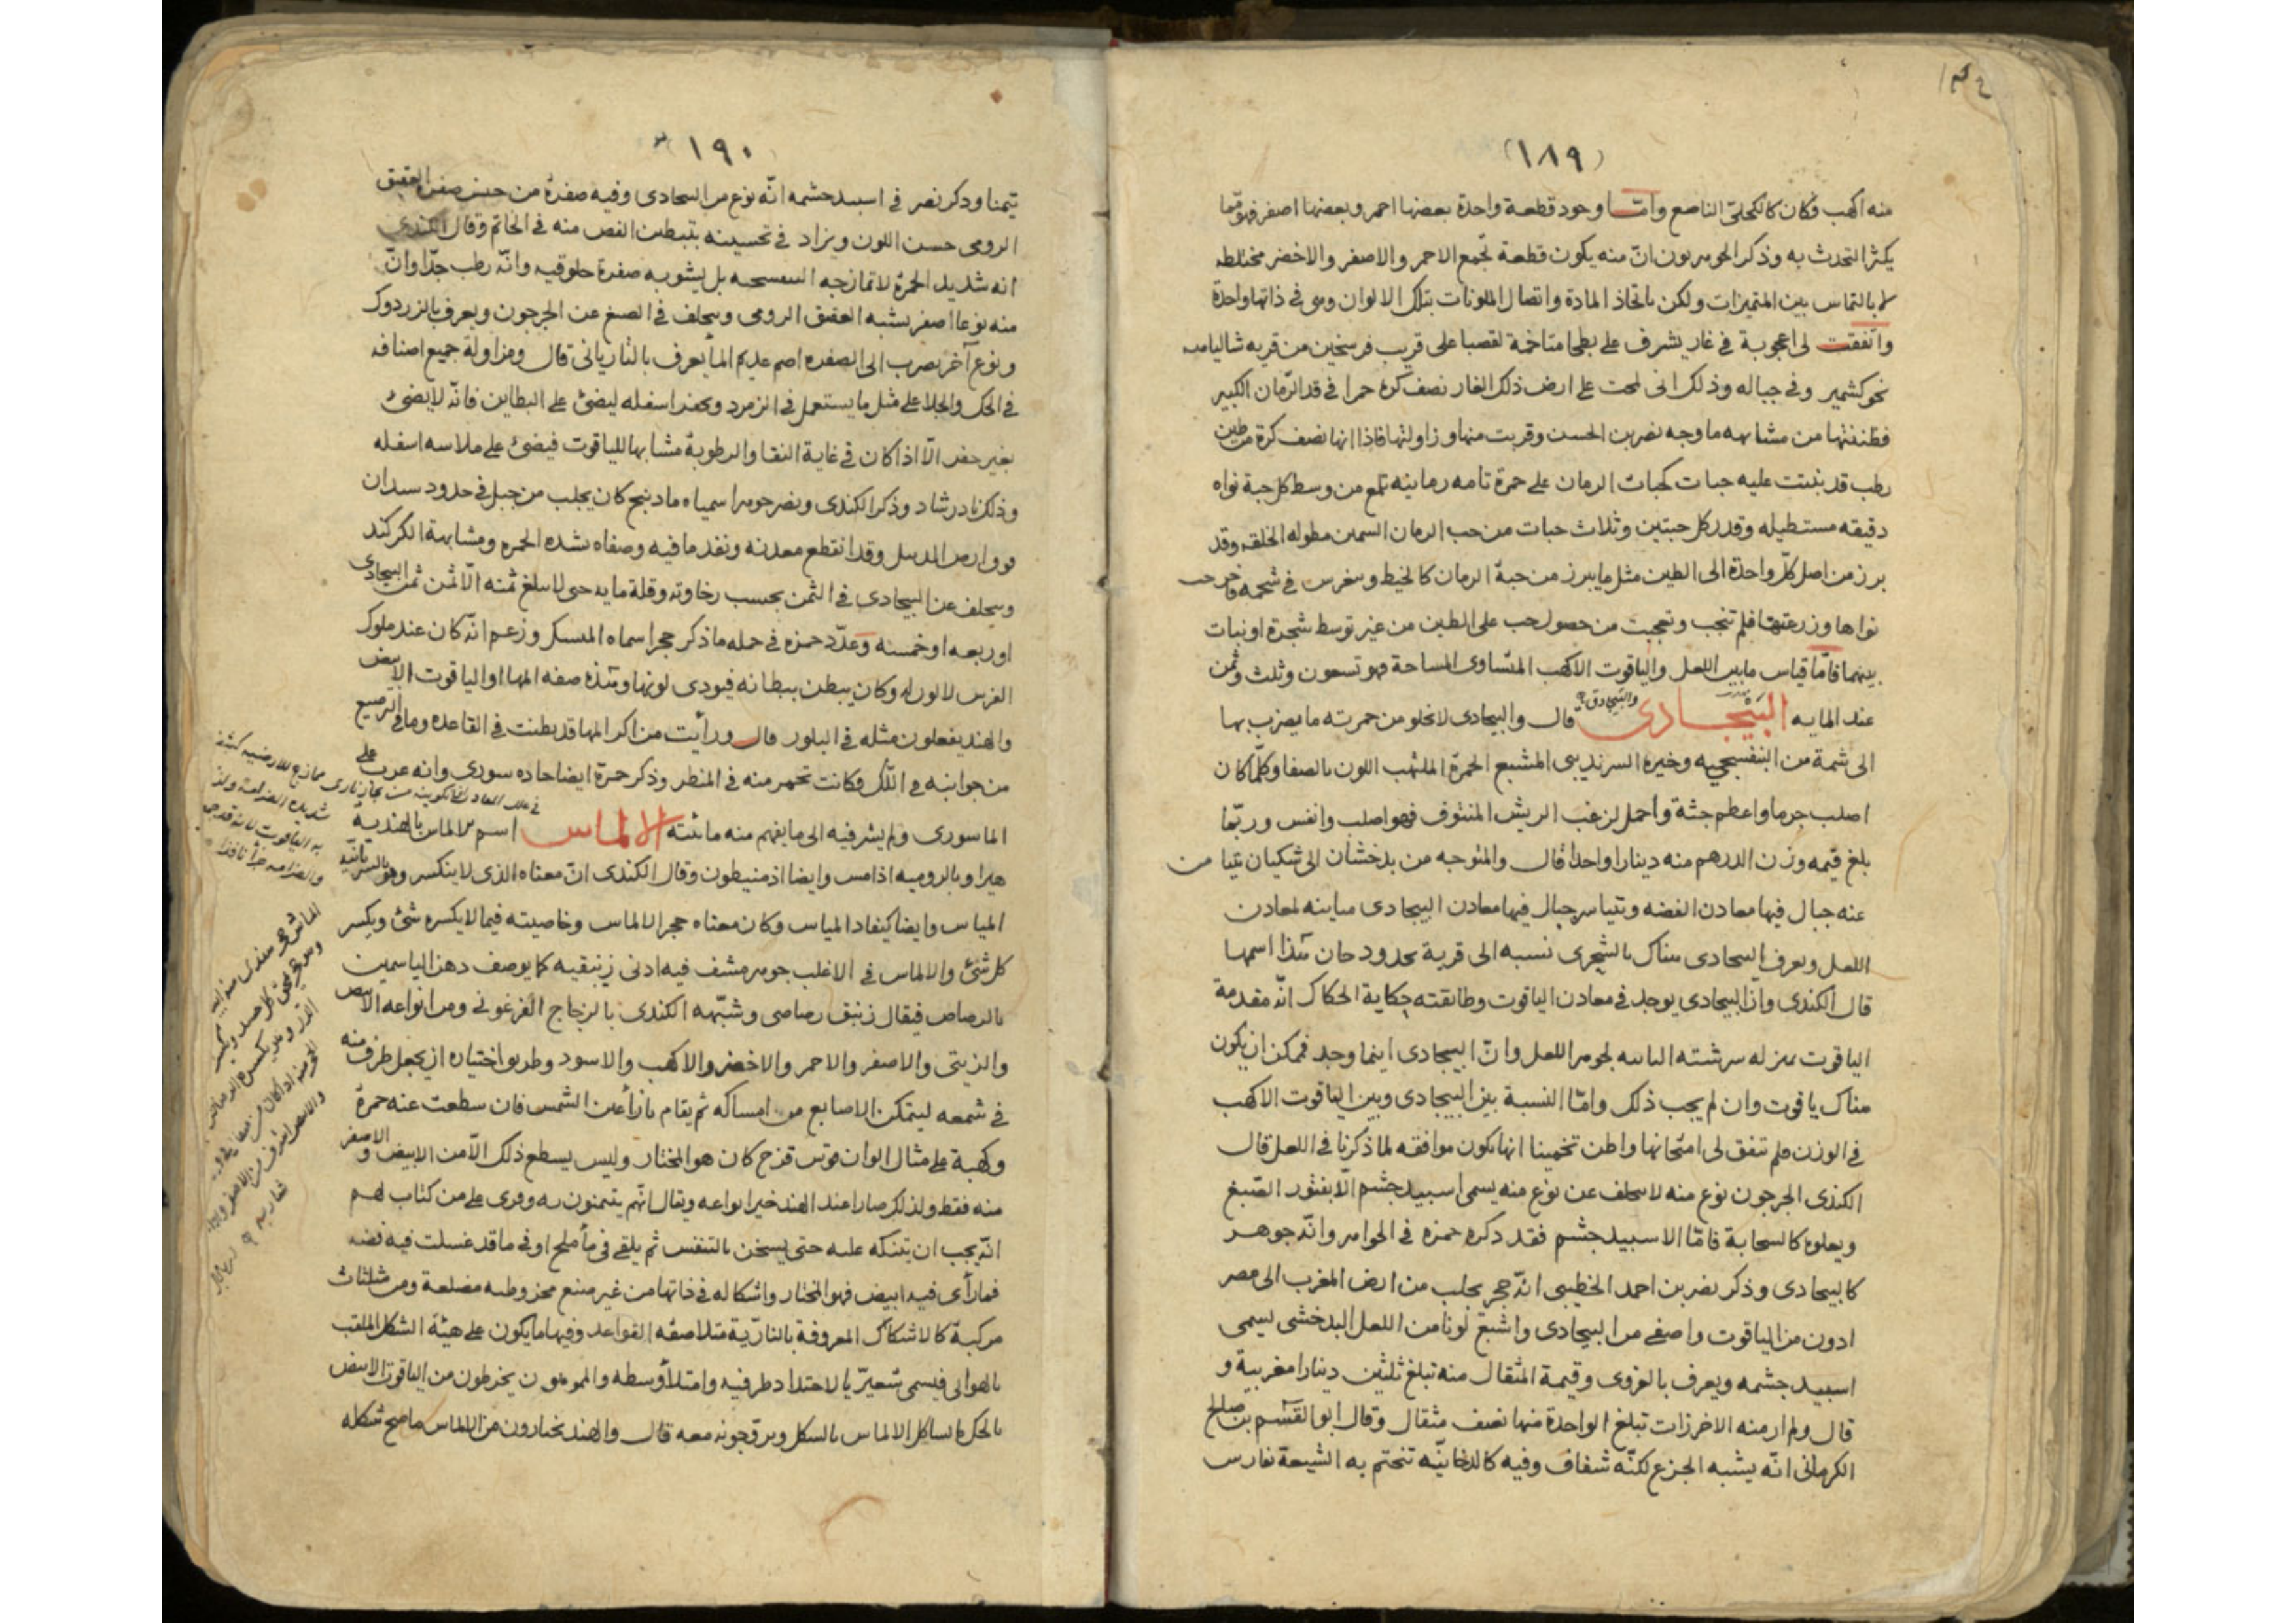 (١٨٩)
منه اكهب فكان كالكحلى الناصع وامّا وجود قطعة واحدة بعضها احمر وبعضها اصفر فهو ممّا
يكثر التحدث به وذكر الجوهريون انّ منه يكون قطعة تجمع الاحمر والاصفر والاخضر مختلطه
لا بالتماس بين المتميزات ولكن باتحاذ المادة واتصال الملونات بتلك الالوان وهى فى ذاتها واحدة
واتفقت لى اعجوبة فى غار يشرف على بطحا متاخمة لقصبا على قريب فرسخين من قريه
نحو كشمير وفى جباله وذلك انى لمحت على ارض ذلك الغار نصف كرة حمرا فى قد الرمان الكبير
فظننتها من مشابهه ما وجه نصر بن الحسن وقربت منها وزاولتها فاذا انها نصف كرة من طين
رطب قد نبتت عليه حبات كحبات الرمان على حمرة تامه رمانيه تلمع من وسط كل حبة نواه
دقيقه مستطيله وقدر كل حبتين وثلاث حبات من حب الرمان السمين مطوله الخلقه وقد
برز من اصل كلّ واحدة الى الطين مثل ما يبرز من حبة الرمان كالخيط وينغرس فى شحمه
نواها وزرعتها فلم تنجب وتعجبت من حصول حب على الطين من غير توسط شجرة او نبات
بينهما فامّا قياس ما بين اللعل والياقوت الاكهب المتساوى المساحة فهو تسعون وثلث وثمن
عند المايه البيجادى قال والبيجادى لا تخلو من حمرته ما يضرب بها
الى شمة من البنفسجيه وخيره السرنديبى المشبع الحمرة الملتهب اللون بالصفا وكلّما كان
اصلب جرما واعظم جثة واحمل لزغب الريش المنتوف فهو اصلب وانفس وربّما
بلغ قيمه وزن الدرهم منه دينارا واحدا قال والمتوجه من بدخشان الى شكنان تتيا من
عنه جبال فيها معادن الفضه وتتياسر جبال فيها معادن البيجادى مباينه لمعادن
اللعل ويعرف البيجادى هناك بالشجرى نسبه الى قرية بحدود هذا اسمها
قال الكندى واذ البيجادى يوجد فى معادن الياقوت وطابقته حكاية الحكاك انّه مقدمة
الياقوت بمنزله سرشته لجوهر اللعل وانّ البيجادى اينما وجد فممكن ان يكون
هناك ياقوت وان لم يجب ذلك وامّا النسبة بين البيجادى وبين الياقوت الاكهب
فى الوزن فلم تتفق لى امتحانها واظن تخمينا انها يكون موافقه لما ذكرنا فى اللعل قال
الكندى الجرجون نوع منه لا يتخلف عن نوع منه يسمى اسبيد چشم الّا بفتور الصّبغ
ويعلوه كالسحابة فامّا الاسبيد چشم فقد ذكره حمزه فى الجواهر وانّه جوهر
كالبيجادى وذكر نصر بن احمد الخطيبى انّه حجر يجلب من ارض المغرب الى مصر
ادون من الياقوت واصفى من البيجادى واشبع لونا من اللعل البدخشى يسمى
اسبيد چشمه ويعرف بالغروى وقيمة المثقال منه تبلغ ثلثين دينارا مغربية و
قال ولم ار منه الا خرزات تبلغ الواحدة منها نصف مثقال وقال ابو القسم بن صالح
الكرمانى انّه يشبه الجزع لكنّه شفاف وفيه كالدخانيّه تتختم به الشيعة بفارس
١٩٠
تيمنا وذكر نصر فى اسبيد چشمه انّه نوع من البيجادى وفيه صفرة من جنس صفرة العقيق
الرومى حسن اللون ويزاد فى تحسينه بتبطين الفص منه فى الخاتم وقال الكندى
انه شديد الحمرة لا تمازجه البنفسجيه بل يشوبه صفرة خلوقيه وانّه رطب جدّا وانّ
منه نوعا اصفر يشبه العقيق الرومى ويتخلف فى الصبغ عن الجرجون ويعرف بالزردوك
ونوع آخر يضرب الى الصفره اصم عديم الماء يعرف بالتاريانى قال ومزاولة جميع اصنافه
فى الحك والجلا على مثل ما يستعمل فى الزمرد ويحفر اسفله ليضئ على البطاين فانّه لا يضئ
بغير حفر الّا اذا كان فى غاية النقا والرطوبة مشابها للياقوت فيضئ على ملاسه اسفله
وذلك نادر شاد وذكر الكندى ونصر جوهرا سمياه مادنبج كان يجلب من جبل فى حدود
وقد انقطع معدنه ونفد ما فيه وصفاه بشده الحمره ومشابهة الكركند
ويتخلف عن البيجادى فى الثمن بحسب رخاوته وقلة مايه حتى لا يبلغ ثمنه الّا ثمن ثمن البيجادى
او ربعه او خمسه وعدّد حمزه فى جمله ما ذكر حجرا سماه وزعم انّه كان عند ملوك
الفرس لا لون له وكان يبطن ببطانه فيودى لونها وهذه صفه المها او الياقوت الابيض
والهند يفعلون مثله فى البلور قال ورأيت من اكر المها قد بطنت فى القاعده وما فى الترصيع
من جوانبه فى اللّك فكانت تحمر منه فى المنظر وذكر حمزة ايضا حاده سورى وانه عرب على
الماسورى ولم يشر فيه الى ما يفهم منه مائيته الالماس اسم الالماس بالهنديه
هيرا وبالروميه اذامس وايضا اذمنيطون وقال الكندى انّ معناه الذى لا ينكسر وهو بالسريانيّه
المياس وايضا كيفاد المياس وكان معناه حجر الالماس وخاصيته فيما لا يكسره شئ ويكسر
كل شئ والالماس فى الاغلب جوهر مشف فيه ادنى زئبقيه كما يوصف دهن الياسمين
بالرصاص فيقال زئبق رصاصى وشبّهه الكندى بالزجاج الفرعونى ومن انواعه الابيض
والزيتى والاصفر والاحمر والاخضر والاكهب والاسود وطريق اختياره ان يجعل طرف منه
فى شمعه ليتمكن الاصابع من امساكه ثم يقام بازاء عين الشمس فان سطعت عنه حمرة
وكهبة على مثال الوان قوس قزح كان هو المختار وليس يسطع ذلك الّا من الابيض والاصفر
منه فقط ولذلك صارا عند الهند خير انواعه ويقال انّهم يتيمنون به وقرى على من كتاب لهم
انّه يجب ان يتنكه عليه حتى يسخن بالتنفس ثم يلقى فى مأ ملح او فى ما قد غسلت فيه فضه
فما رأى فيه ابيض فهو المختار واشكاله فى ذاتها من غير صنع مخروطيه مضلعة ومن مثلثات
مركبة كالاشكال المعروفة بالناريّة متلاصقه القواعد وفيها ما يكون على هيئة الشكل الملقب
بالهوائى فيسمى شعيريّا لاحتداد طرفيه وامتلاء وسطه والمموهون يخرطون من الياقوت الابيض
بالحك ما يشاكل الالماس بالشكل ويروجونه معه قال والهند يختارون من الالماس ما صح شكله